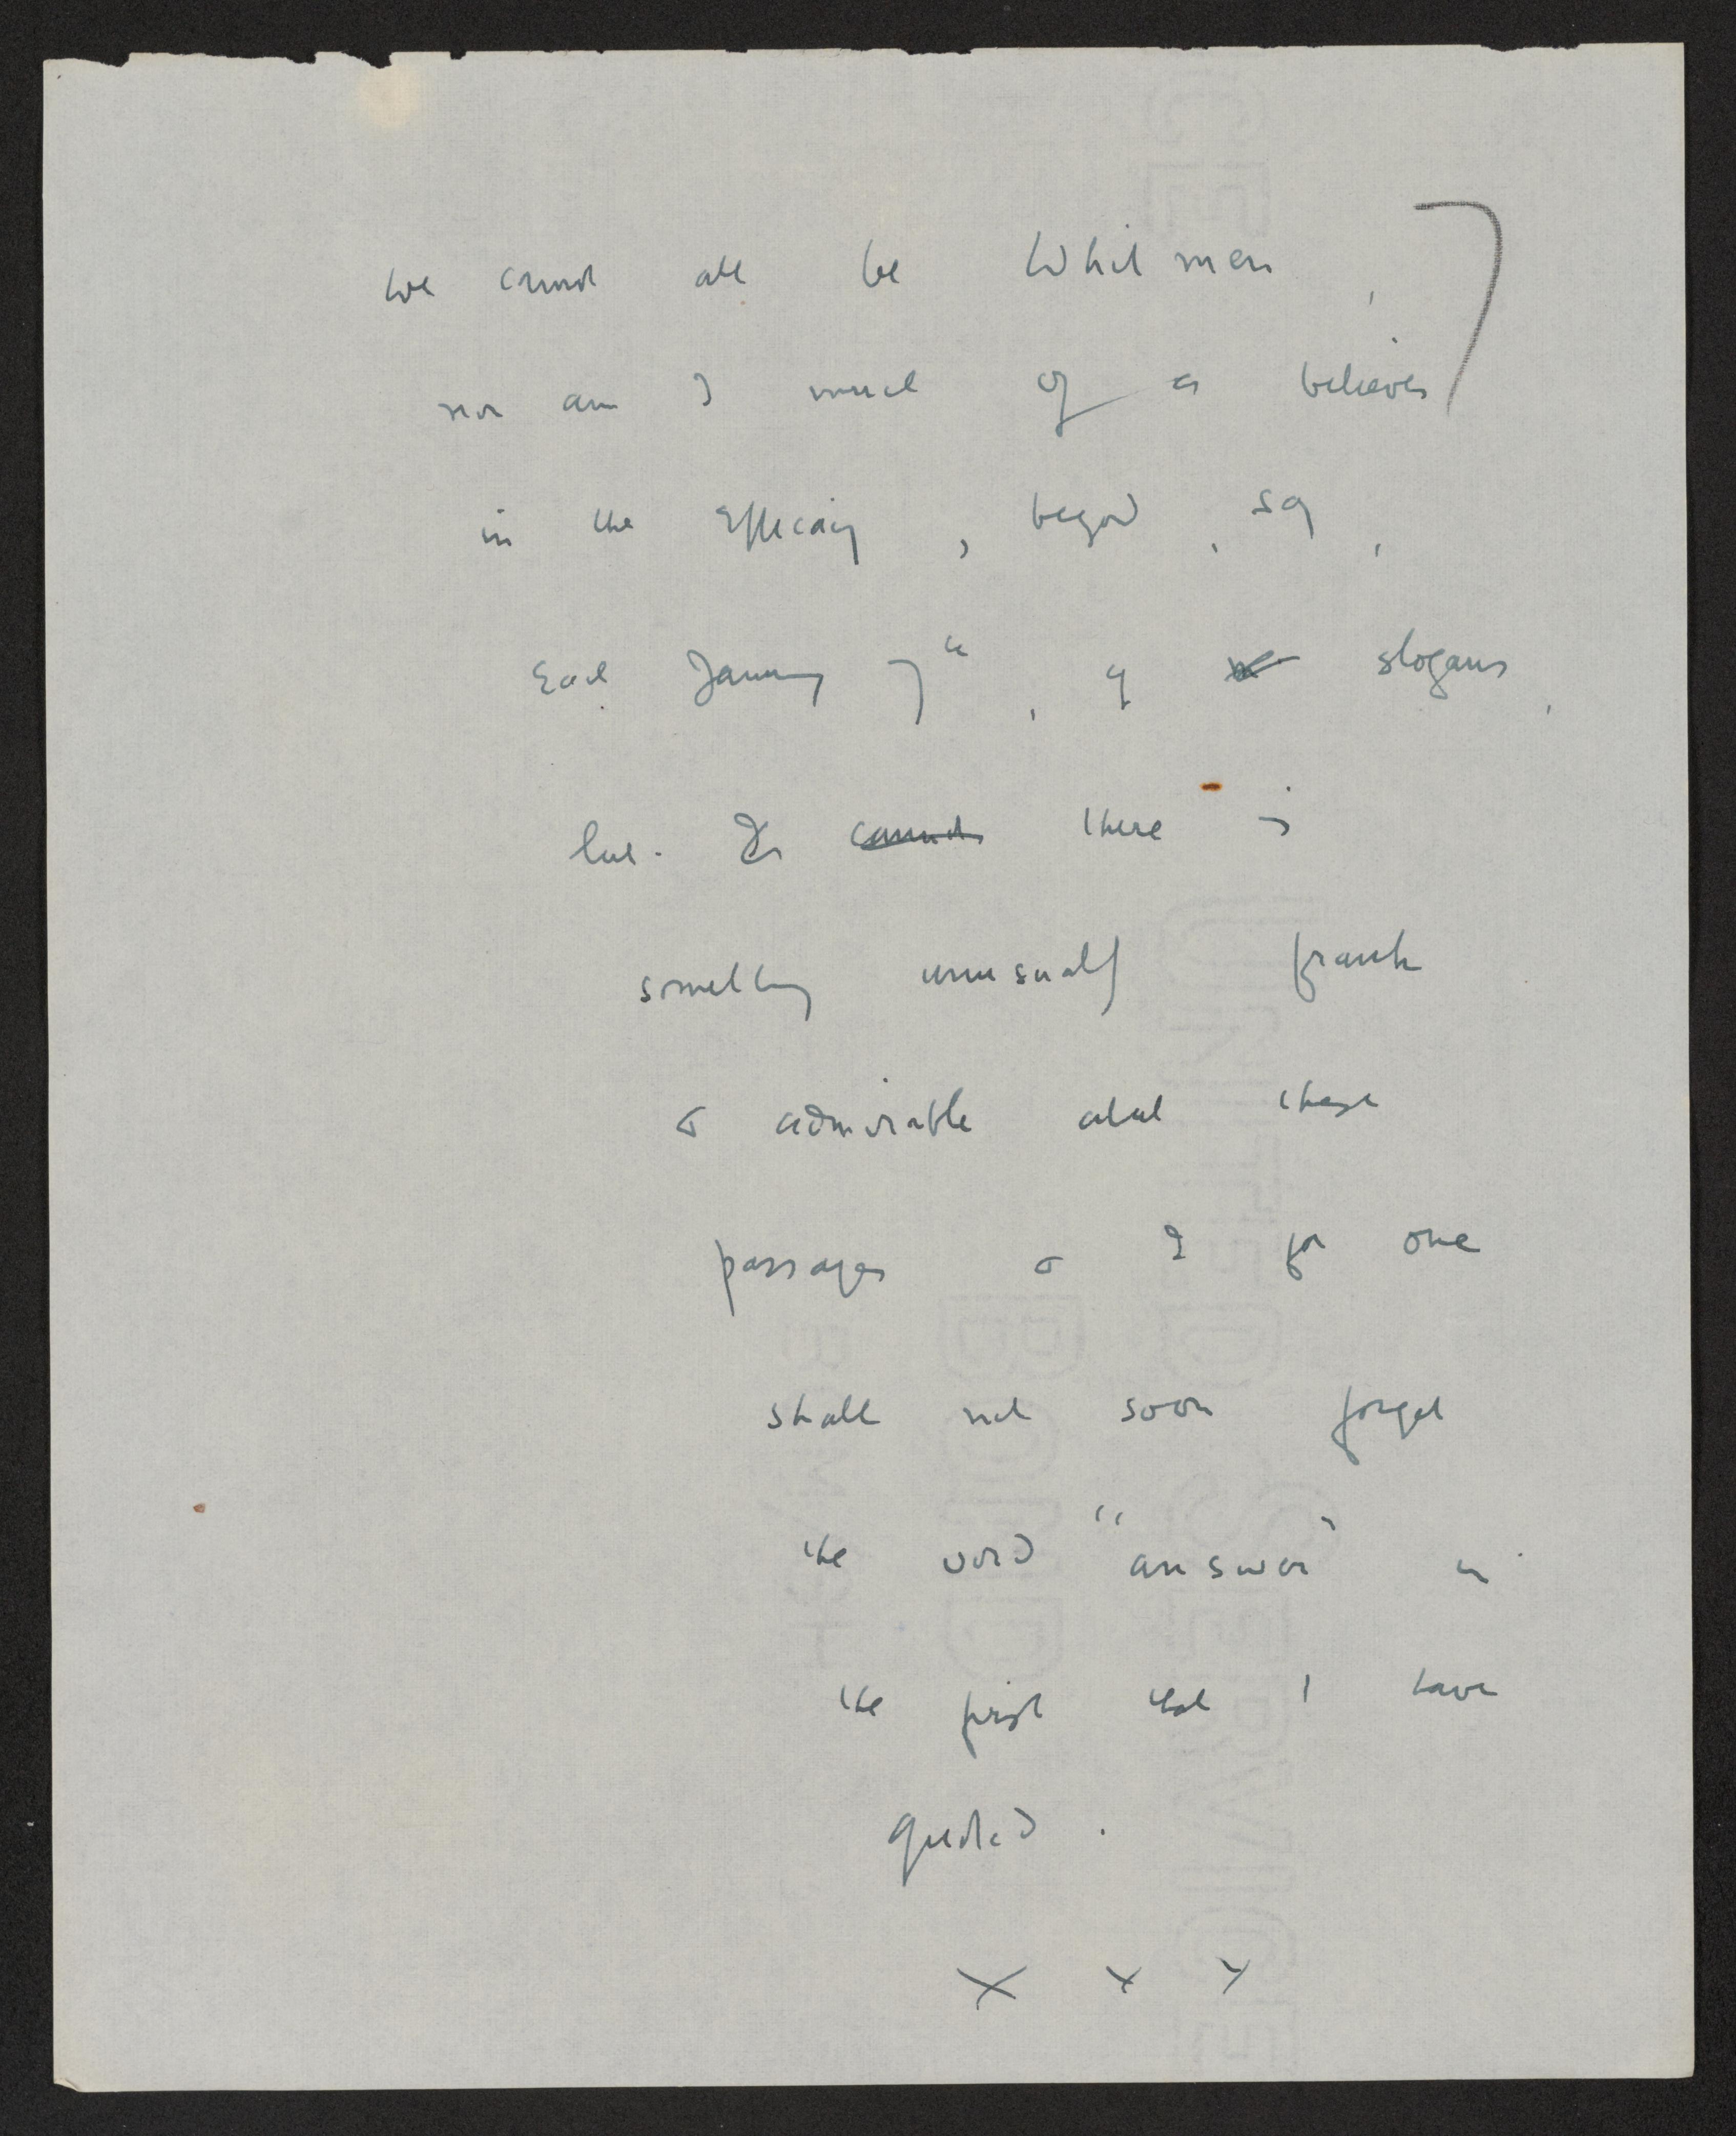 We cannot all be Whitmen,
nor am I much of a believer
in the efficacy, begod, say,
January 7th, of slogans,
but. there is
something unusually frank
& admirable about these
passages & I for one
shall not soon forget
the word "answer" in
the first that I have
quoted.
X X X